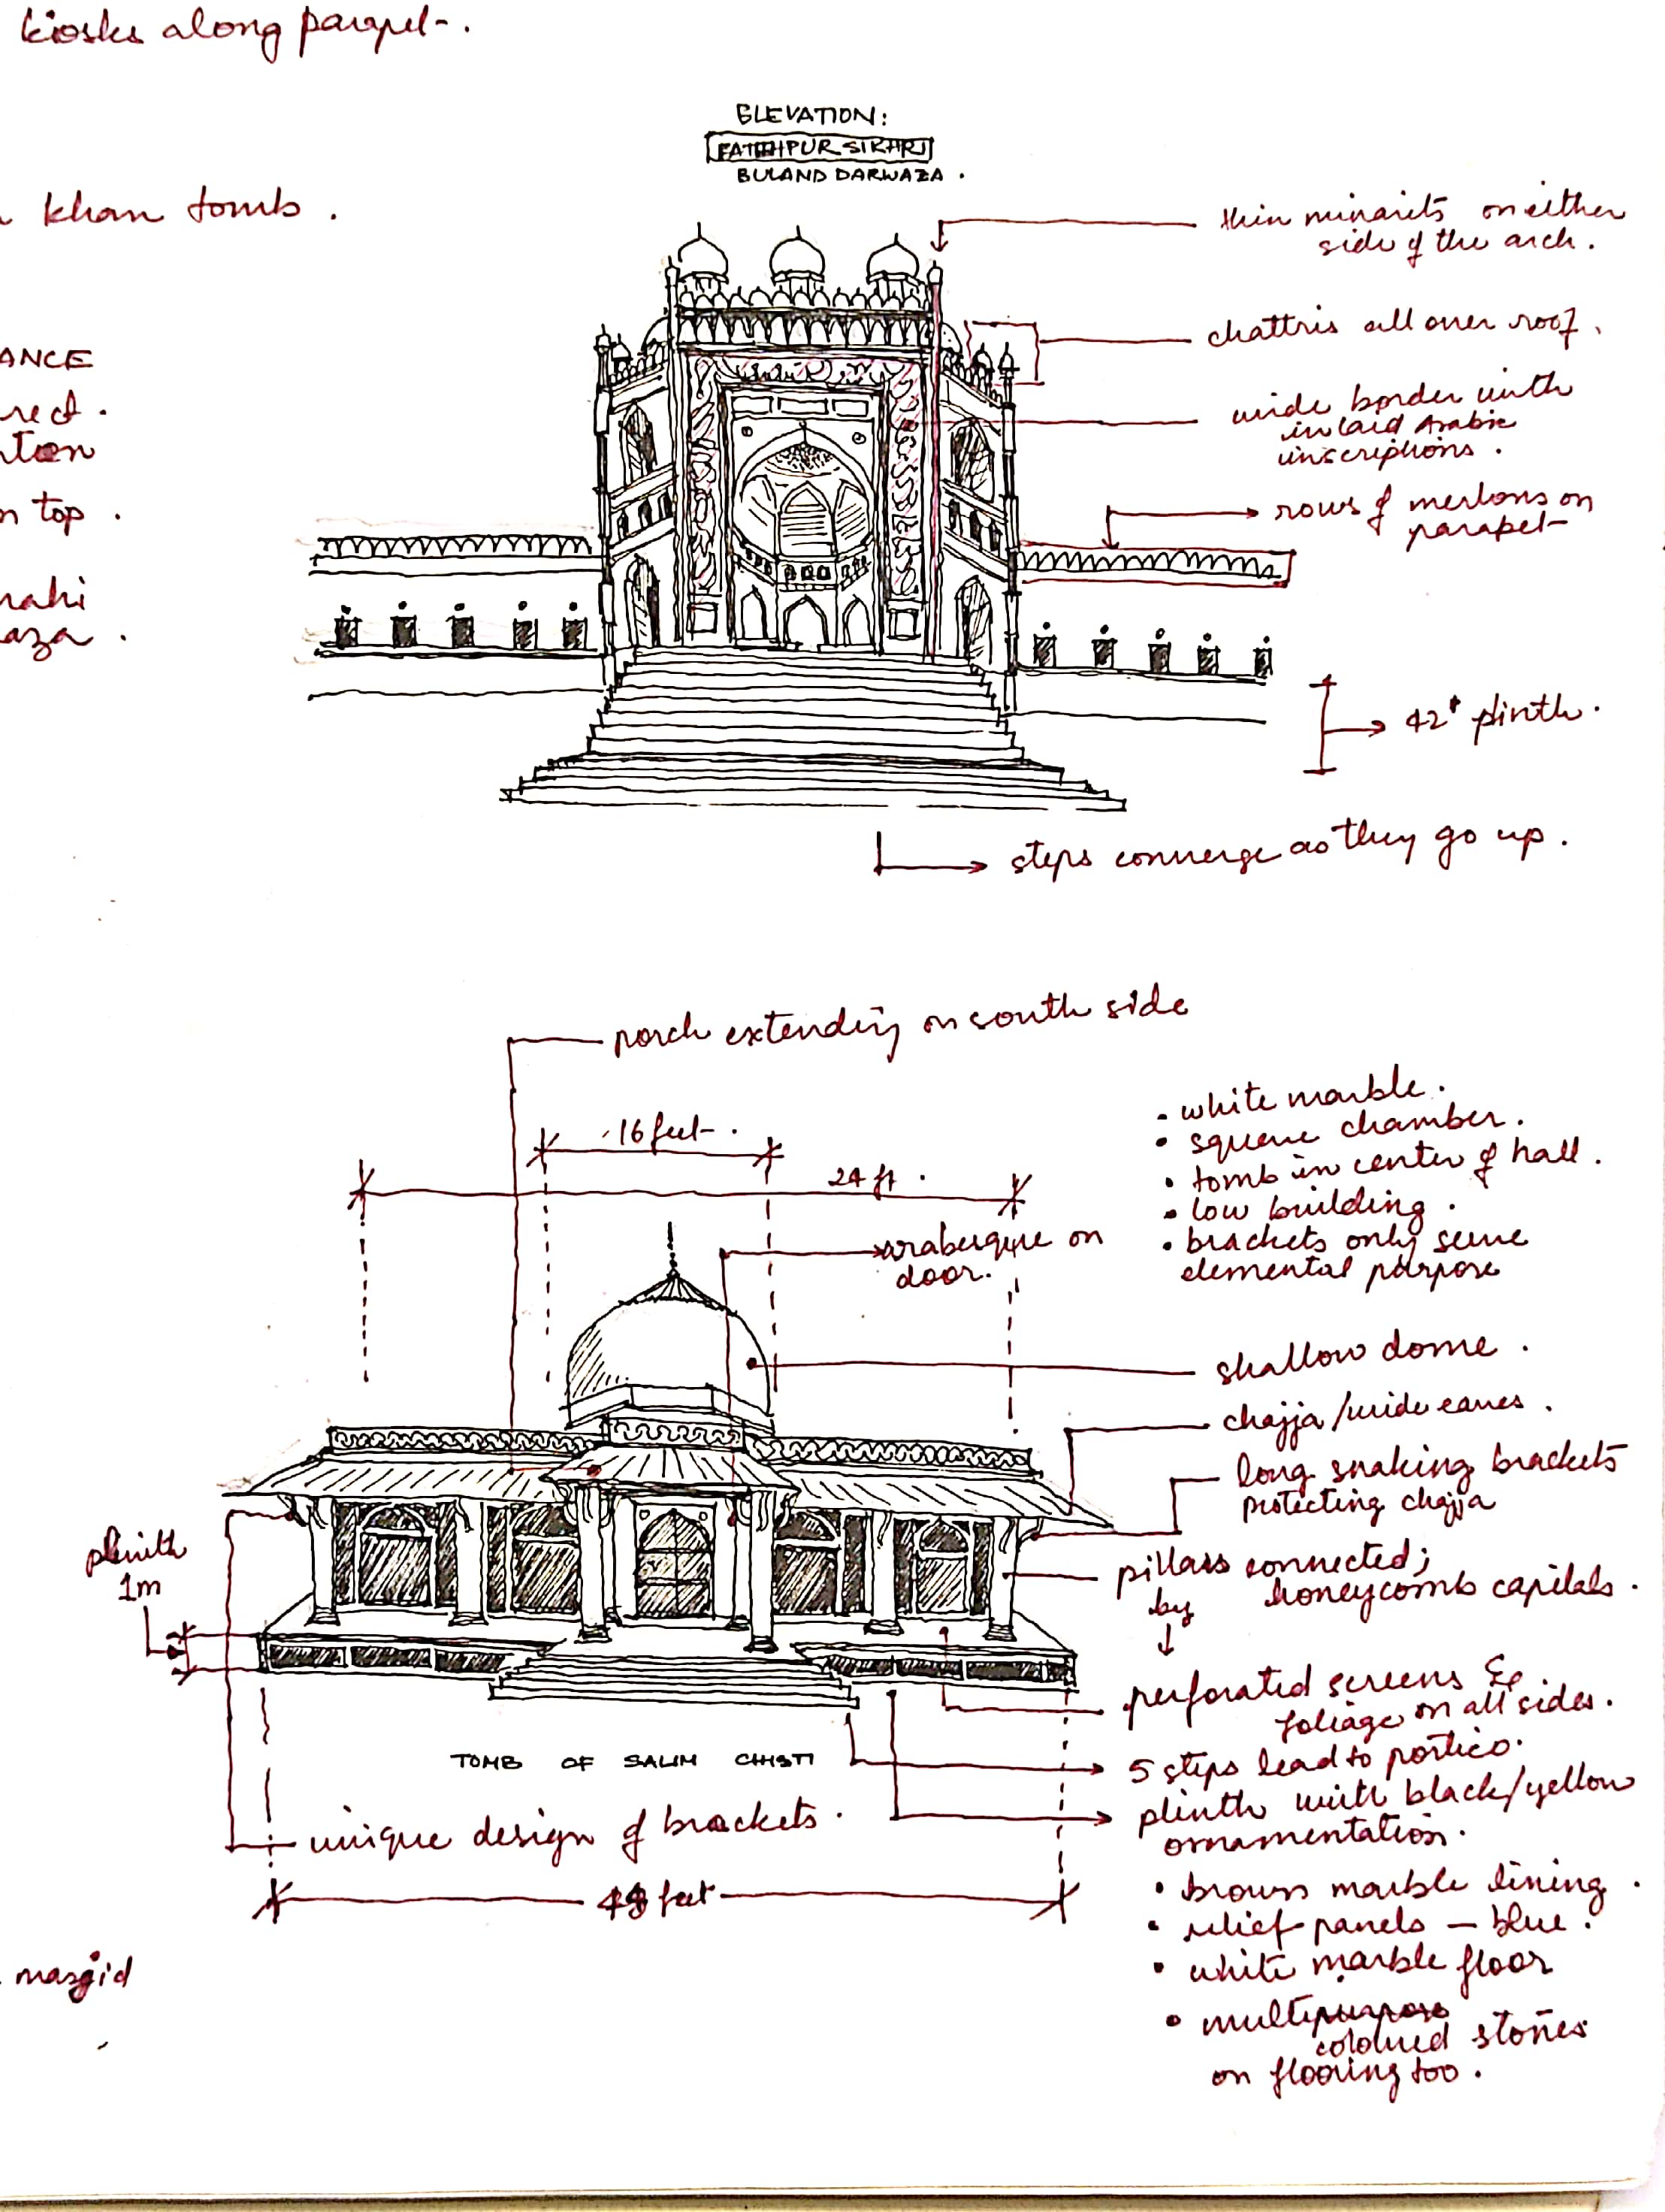 kiosks along parapet.
khan tomb.
ANCE
rect.
ntion
n top.
rahi
aza.
masjid
ELEVATION:
FATEHPUR SIKHRI
BULAND DARWAZA.
thin minarets on either
side of the arch.
chattris all over roof.
wide border with
inlaid Arabic
inscriptions.
rows of merlons on
parapet
42' plinth.
steps converge as they go up.
porch extending on south side
16 feet.
24 ft.
arabesque on
door.
• white marble.
• square chamber.
• tomb in center of hall.
• low building.
• brackets only serve
elemental purpose
shallow dome.
chajja/wide eaves.
long snaking brackets
protecting chajja
pillars connected; honeycomb capitals.
by
perforated screens &
foliage on all sides.
5 steps lead to portico.
plinth with black/yellow
ornamentation.
• brown marble lining.
• relief panels – blue.
• white marble floor
• multi
coloured stones
on flooring too.
plinth
1m
TOMB OF SALIM CHISTI
unique design of brackets.
feet